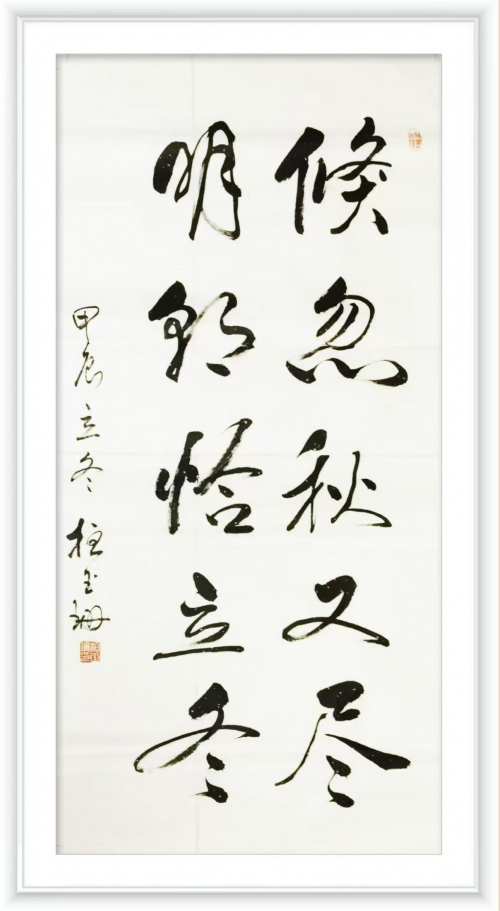 倏忽秋又尽
明朝恰立冬
甲辰立冬